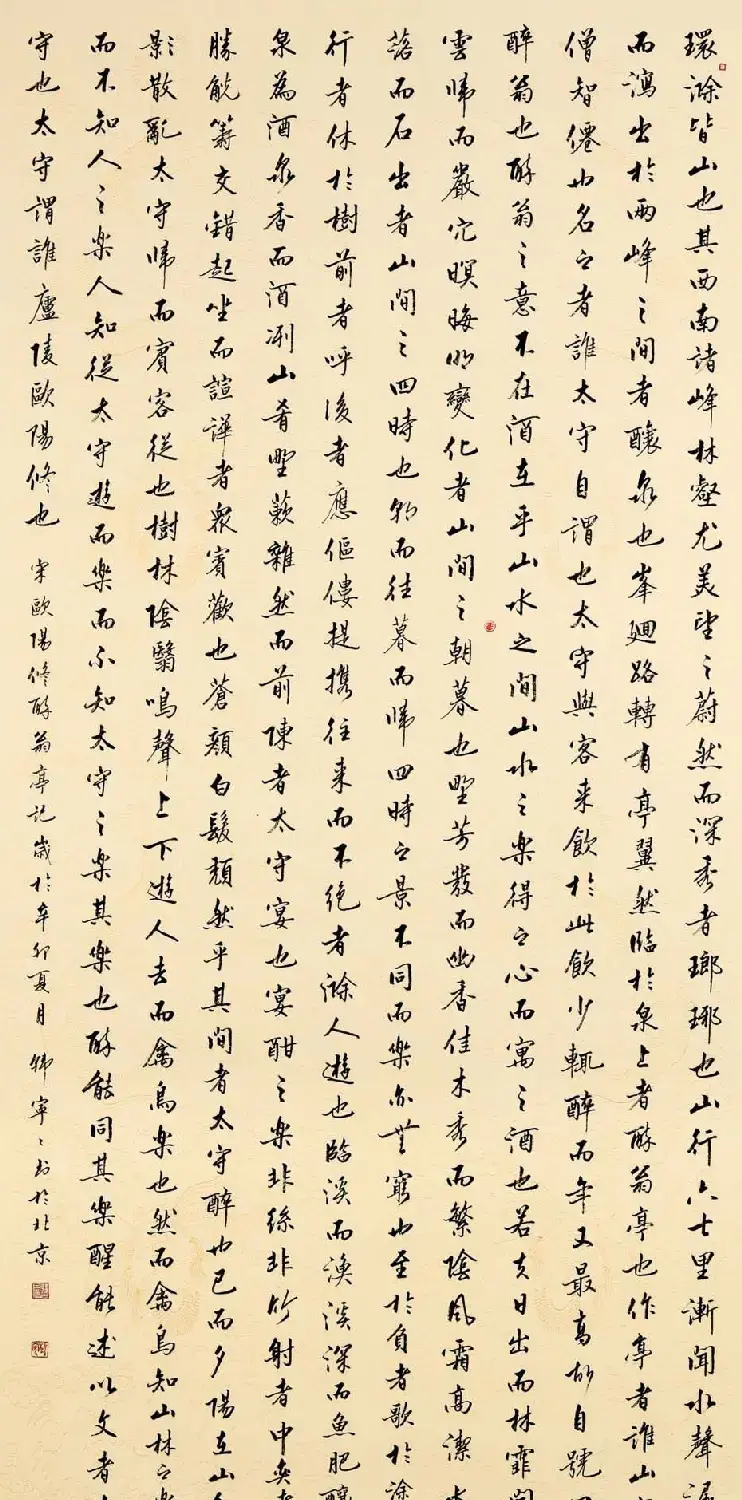 環滁皆山也其西南諸峰林壑尤美望之蔚然而深秀者瑯琊也山行六七里漸聞水聲潺
而瀉出於兩峰之間者釀泉也峯廻路轉有亭翼然臨於泉上者醉翁亭也作亭者誰山
僧智僊也名之者誰太守自謂也太守與客来飲於此飲少輒醉而年又最高故自號曰
醉翁也醉翁之意不在酒在乎山水之間山水之樂得之心而寓之酒也若夫日出而林霏開
雲歸而巖穴暝晦明變化者山間之朝暮也野芳發而幽香佳木秀而繁陰風霜高潔水
落而石出者山間之四時也朝而往暮而歸四時之景不同而樂亦無窮也至於負者歌於塗
行者休於樹前者呼後者應傴僂提携往来而不绝者滁人遊也臨溪而漁溪深而魚肥釀
泉為酒泉香而酒洌山肴野蔌雜然而前陳者太守宴也宴酣之樂非絲非竹射者中奕者
勝觥籌交錯起坐而諠譁者衆賓歡也蒼顏白髮頹然乎其間者太守醉也已而夕陽在山人
影散亂太守歸而賓客從也樹林陰翳鳴聲上下遊人去而禽鳥樂也然而禽鳥知山林之樂
而不知人之樂人知從太守遊而樂而不知太守之樂其樂也醉能同其樂醒能述以文者太
守也太守謂誰廬陵歐陽修也 宋歐陽修醉翁亭記歲於辛卯夏月韓寧寧書於北京